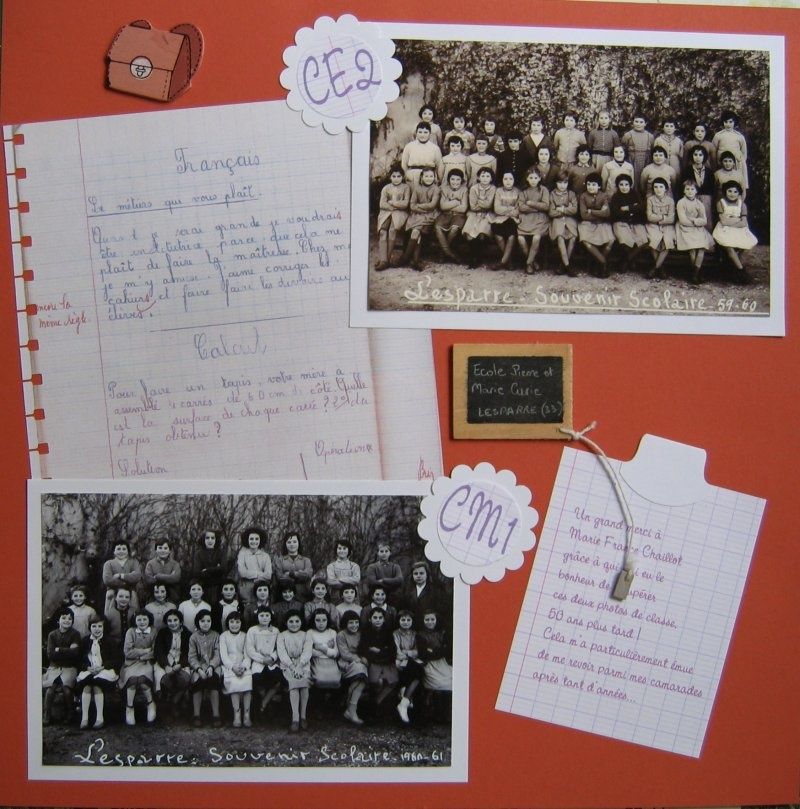 CE2
Français
Le métiers qui vous plaît.
Quand je serai grande je voudrais
être institutrice, parce que cela me
plaît de faire la maîtresse. Chez moi
je m'y amuse. J'aime corriger les
cahiers et faire faire les devoirs aux
élèves.
encore la
même règle.
Calcul
Pour faire un tapis, votre mère a
assemblé carrés de 50 cm de côté. Quelle
est la surface de chaque carré ? 2º du
tapis obtenu ?
Solution
Opérations
L'esparre - Souvenir Scolaire - 59-60
Ecole Pierre et
Marie Curie
LESPARRE (33)
CM1
Un grand merci à
Marie France Chaillot
grâce à qui eu le
bonheur de
ces deux photos de classe,
50 ans plus tard !
Cela m'a particulièrement émue
de me revoir parmi mes camarades
après tant d'années...
L'esparre - Souvenir Scolaire - 1960-61